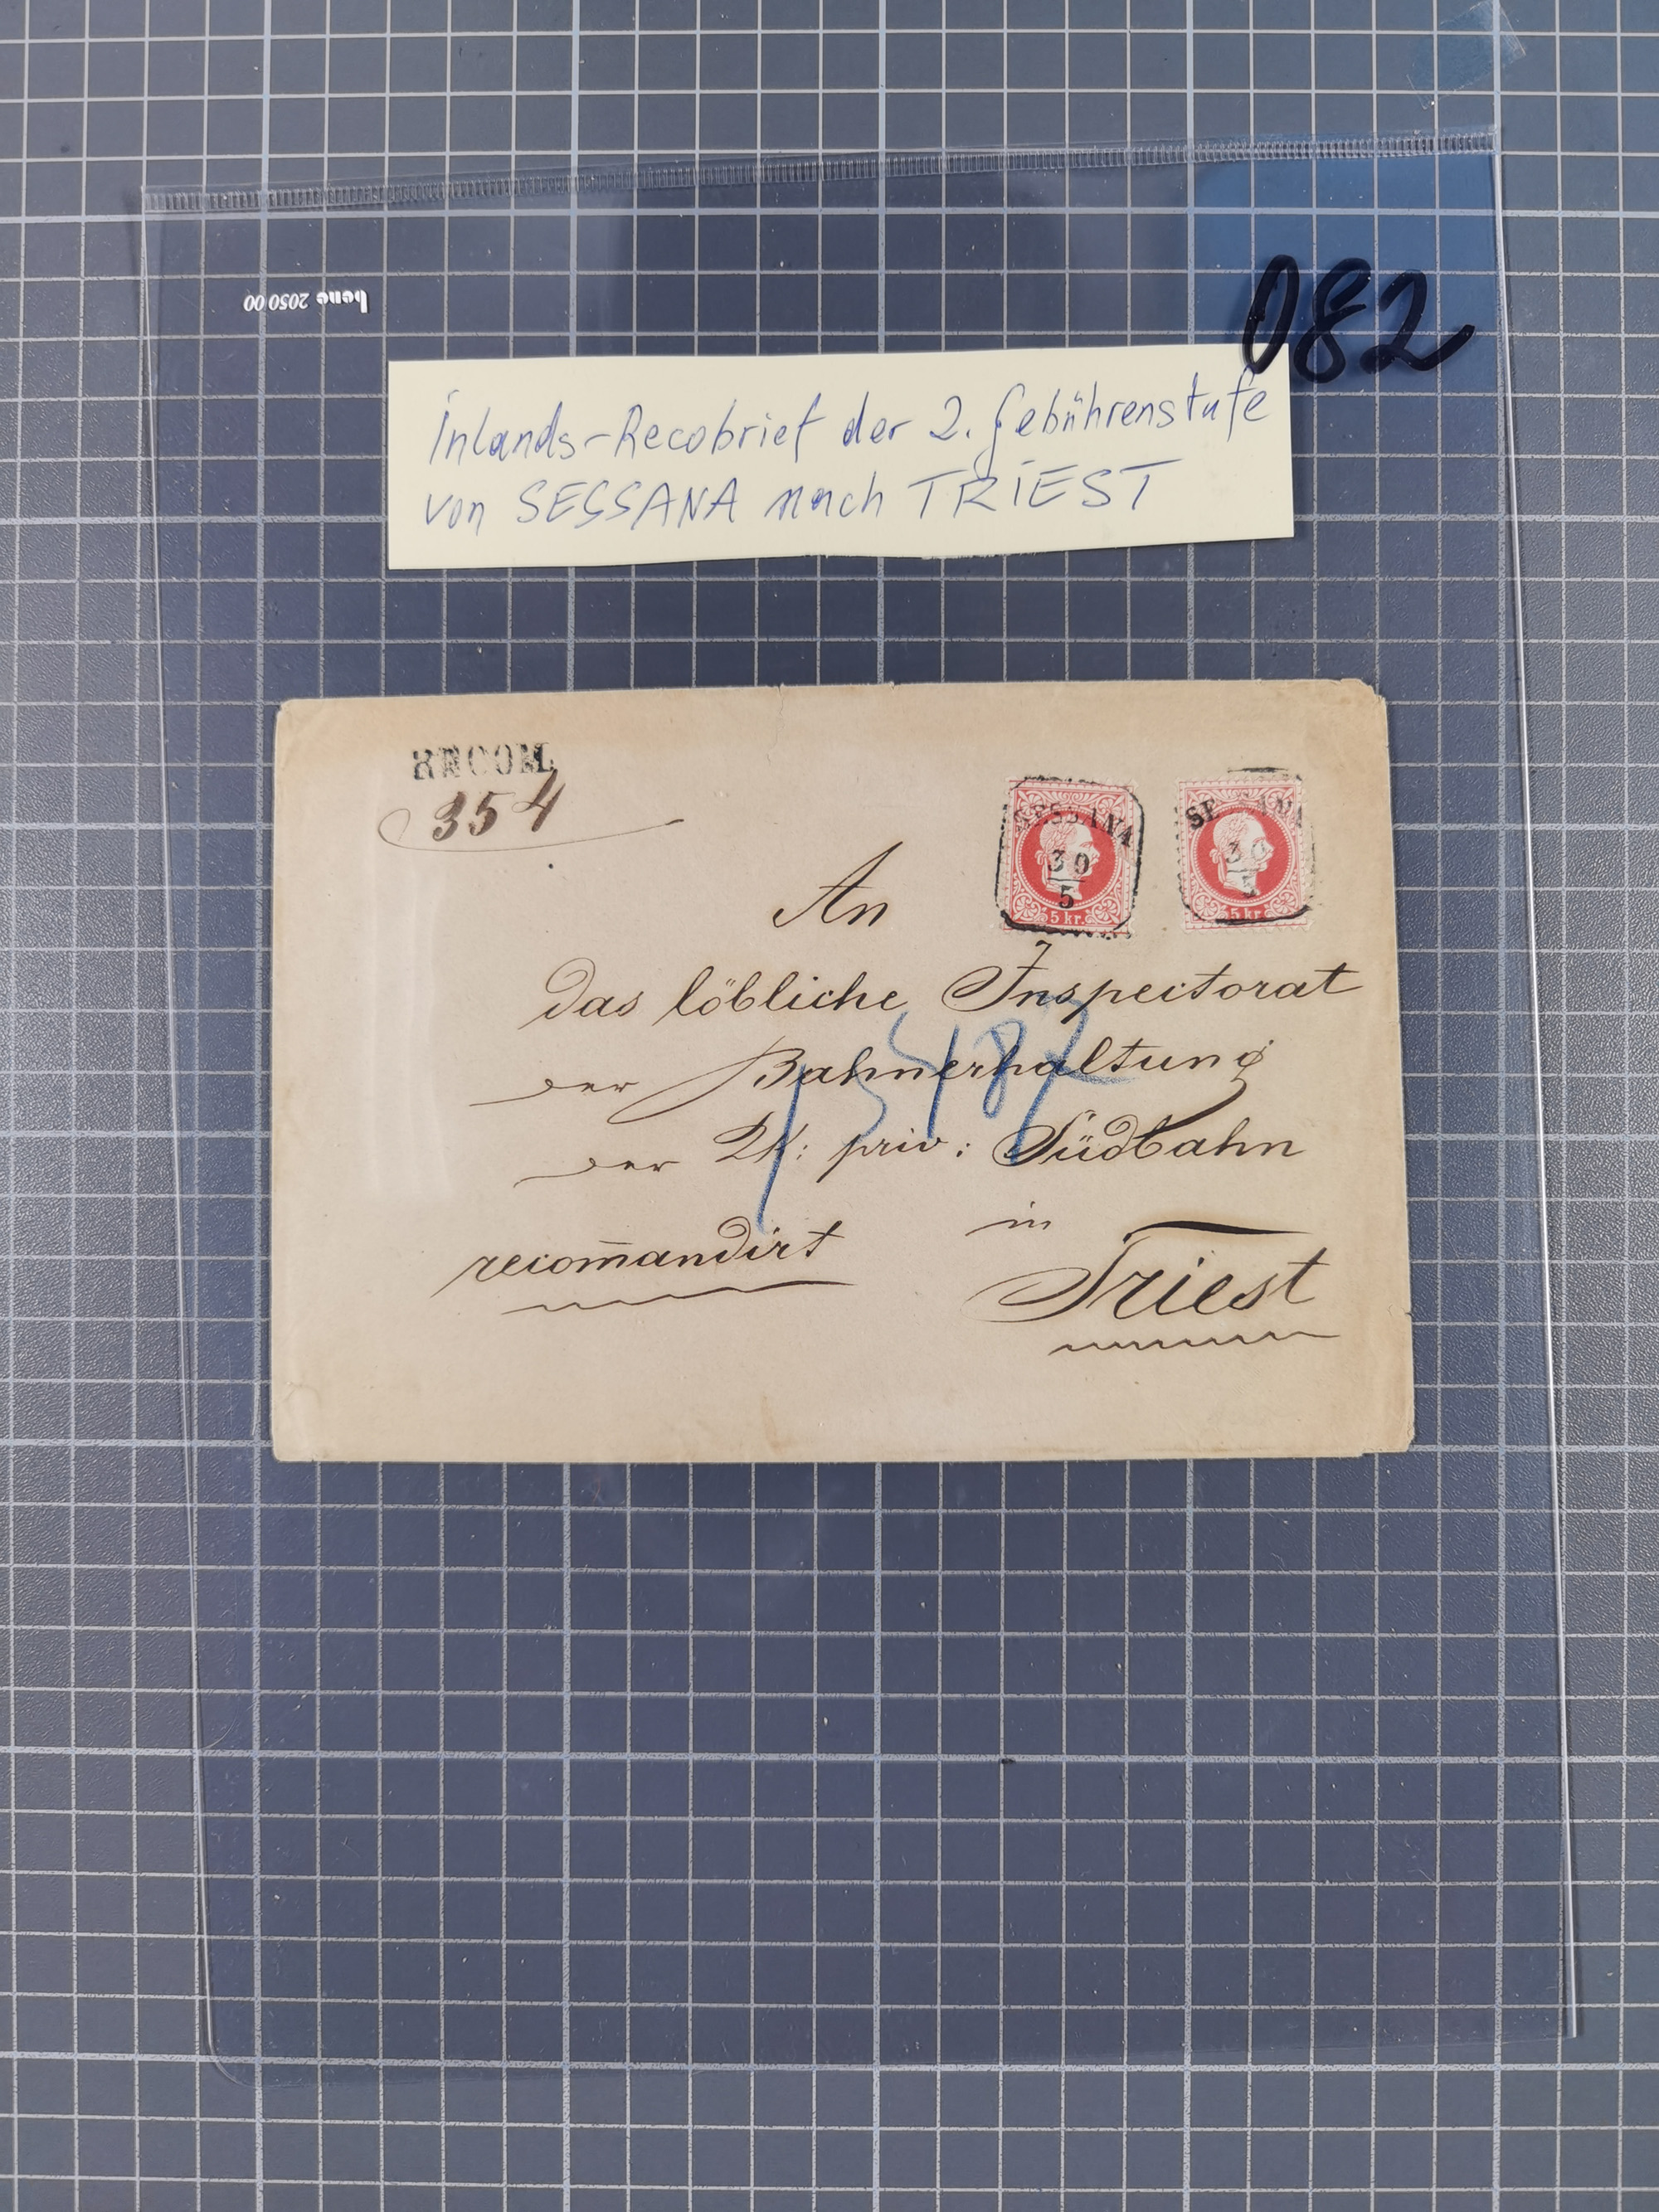 bene 205000
082
Inlands-Recobrief der 2. Gebührenstufe
von SESSANA nach TRIEST
RECOM
354
SESSANA
30
5
5 kr.
SESSANA
30
5
5 kr.
An
das löbliche Inspectorat
der Bahnerhaltung
der K: priv: Südbahn
in
recom̄andirt
Triest